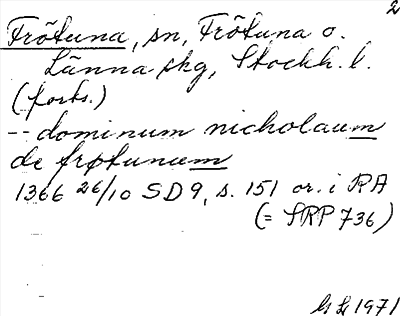 2
Frötuna, sn, Frötuna o.
Länna skg, Stockh. l.
(forts.)
-- dominum nicholaum
de frøtunum
1366 26/10 SD 9, s. 151 or. i RA
(= SRP 736)
1971